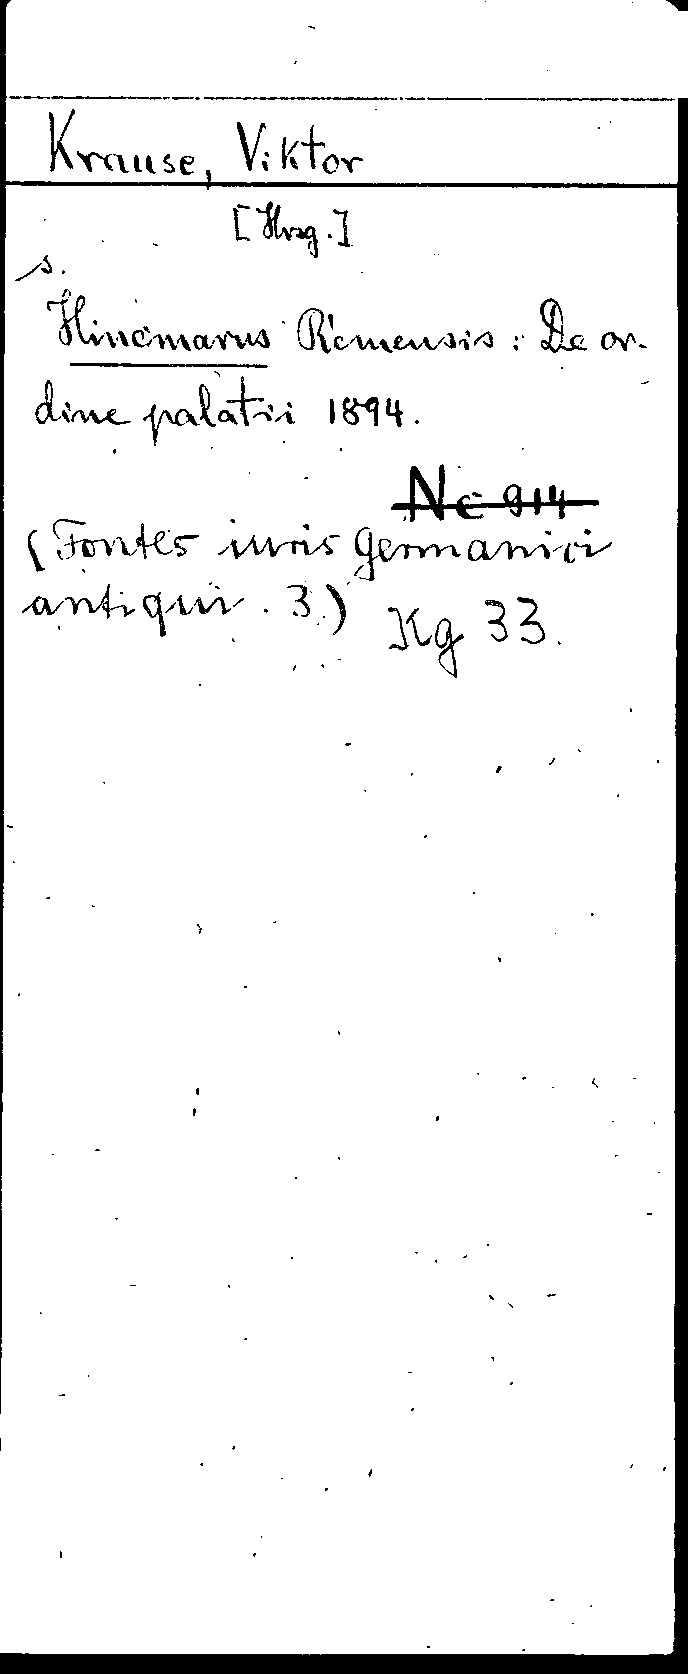 Krause, Viktor
[Hrsg.]
s.
Hincmarus Remensis: De or-
dine palatii 1894.
Nc 914
(Fontes iuris Germanici
antiqui. 3.) Kg 33.